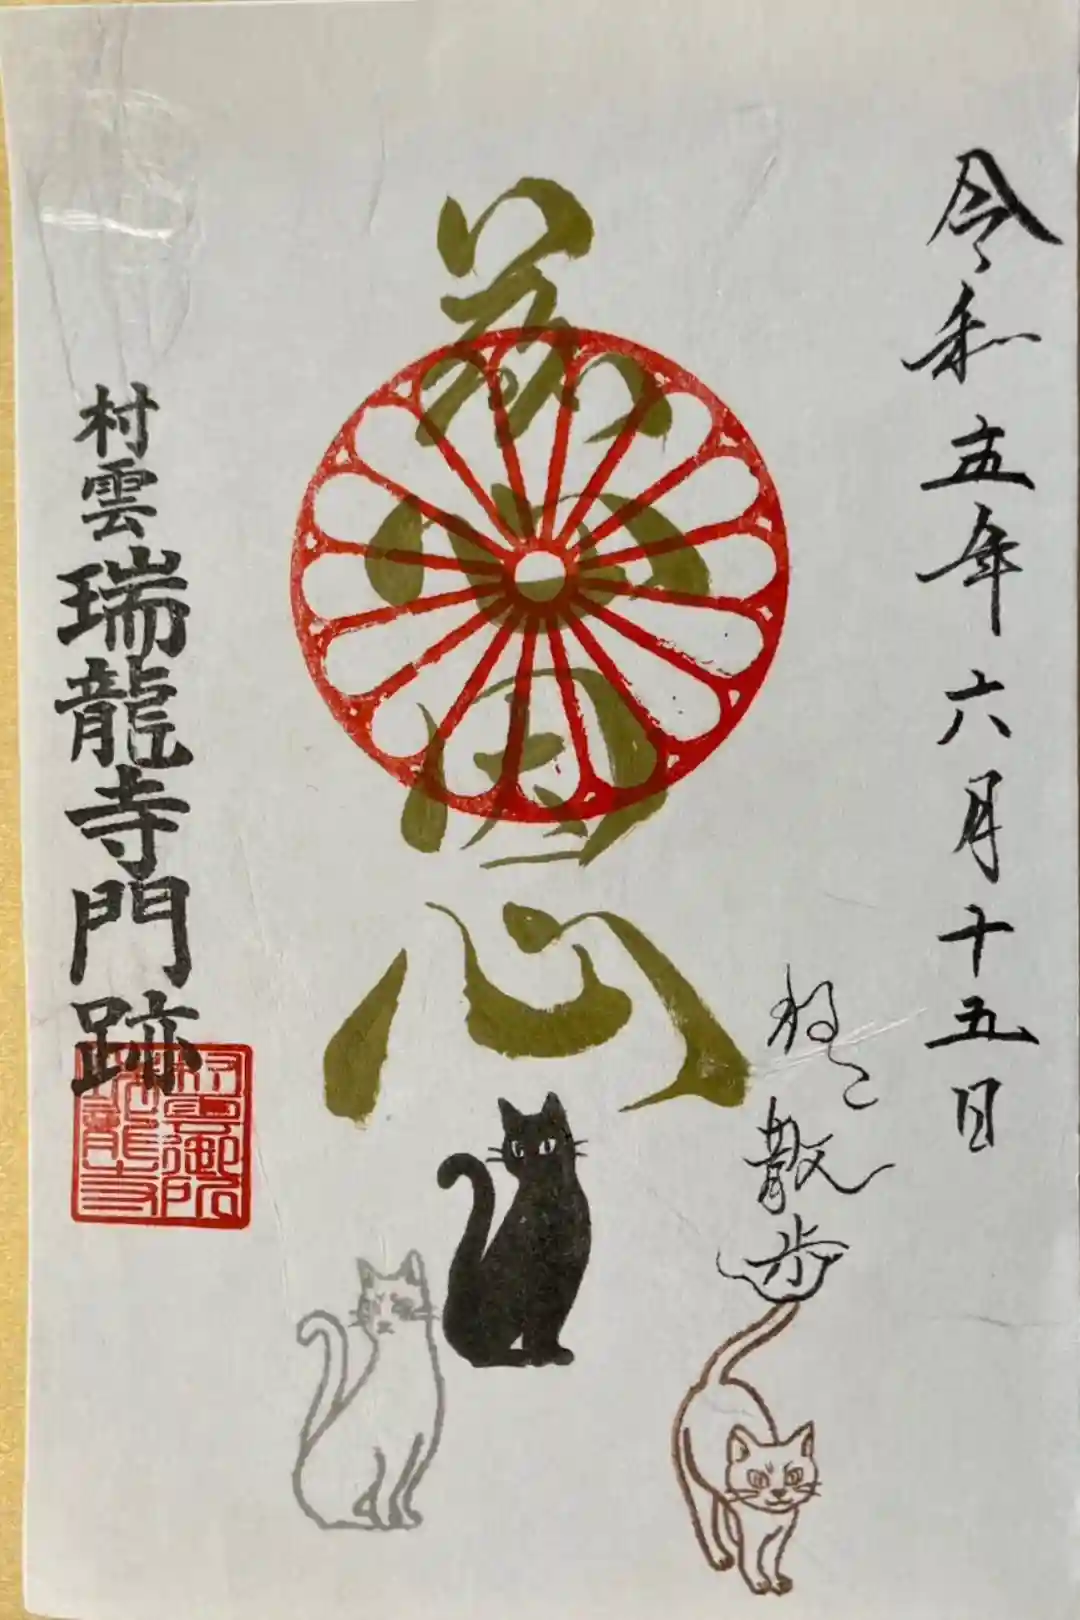 令和五年六月十五日
ねこ
散歩
慈悲心
村雲
瑞龍寺門跡
村雲御所
瑞龍寺